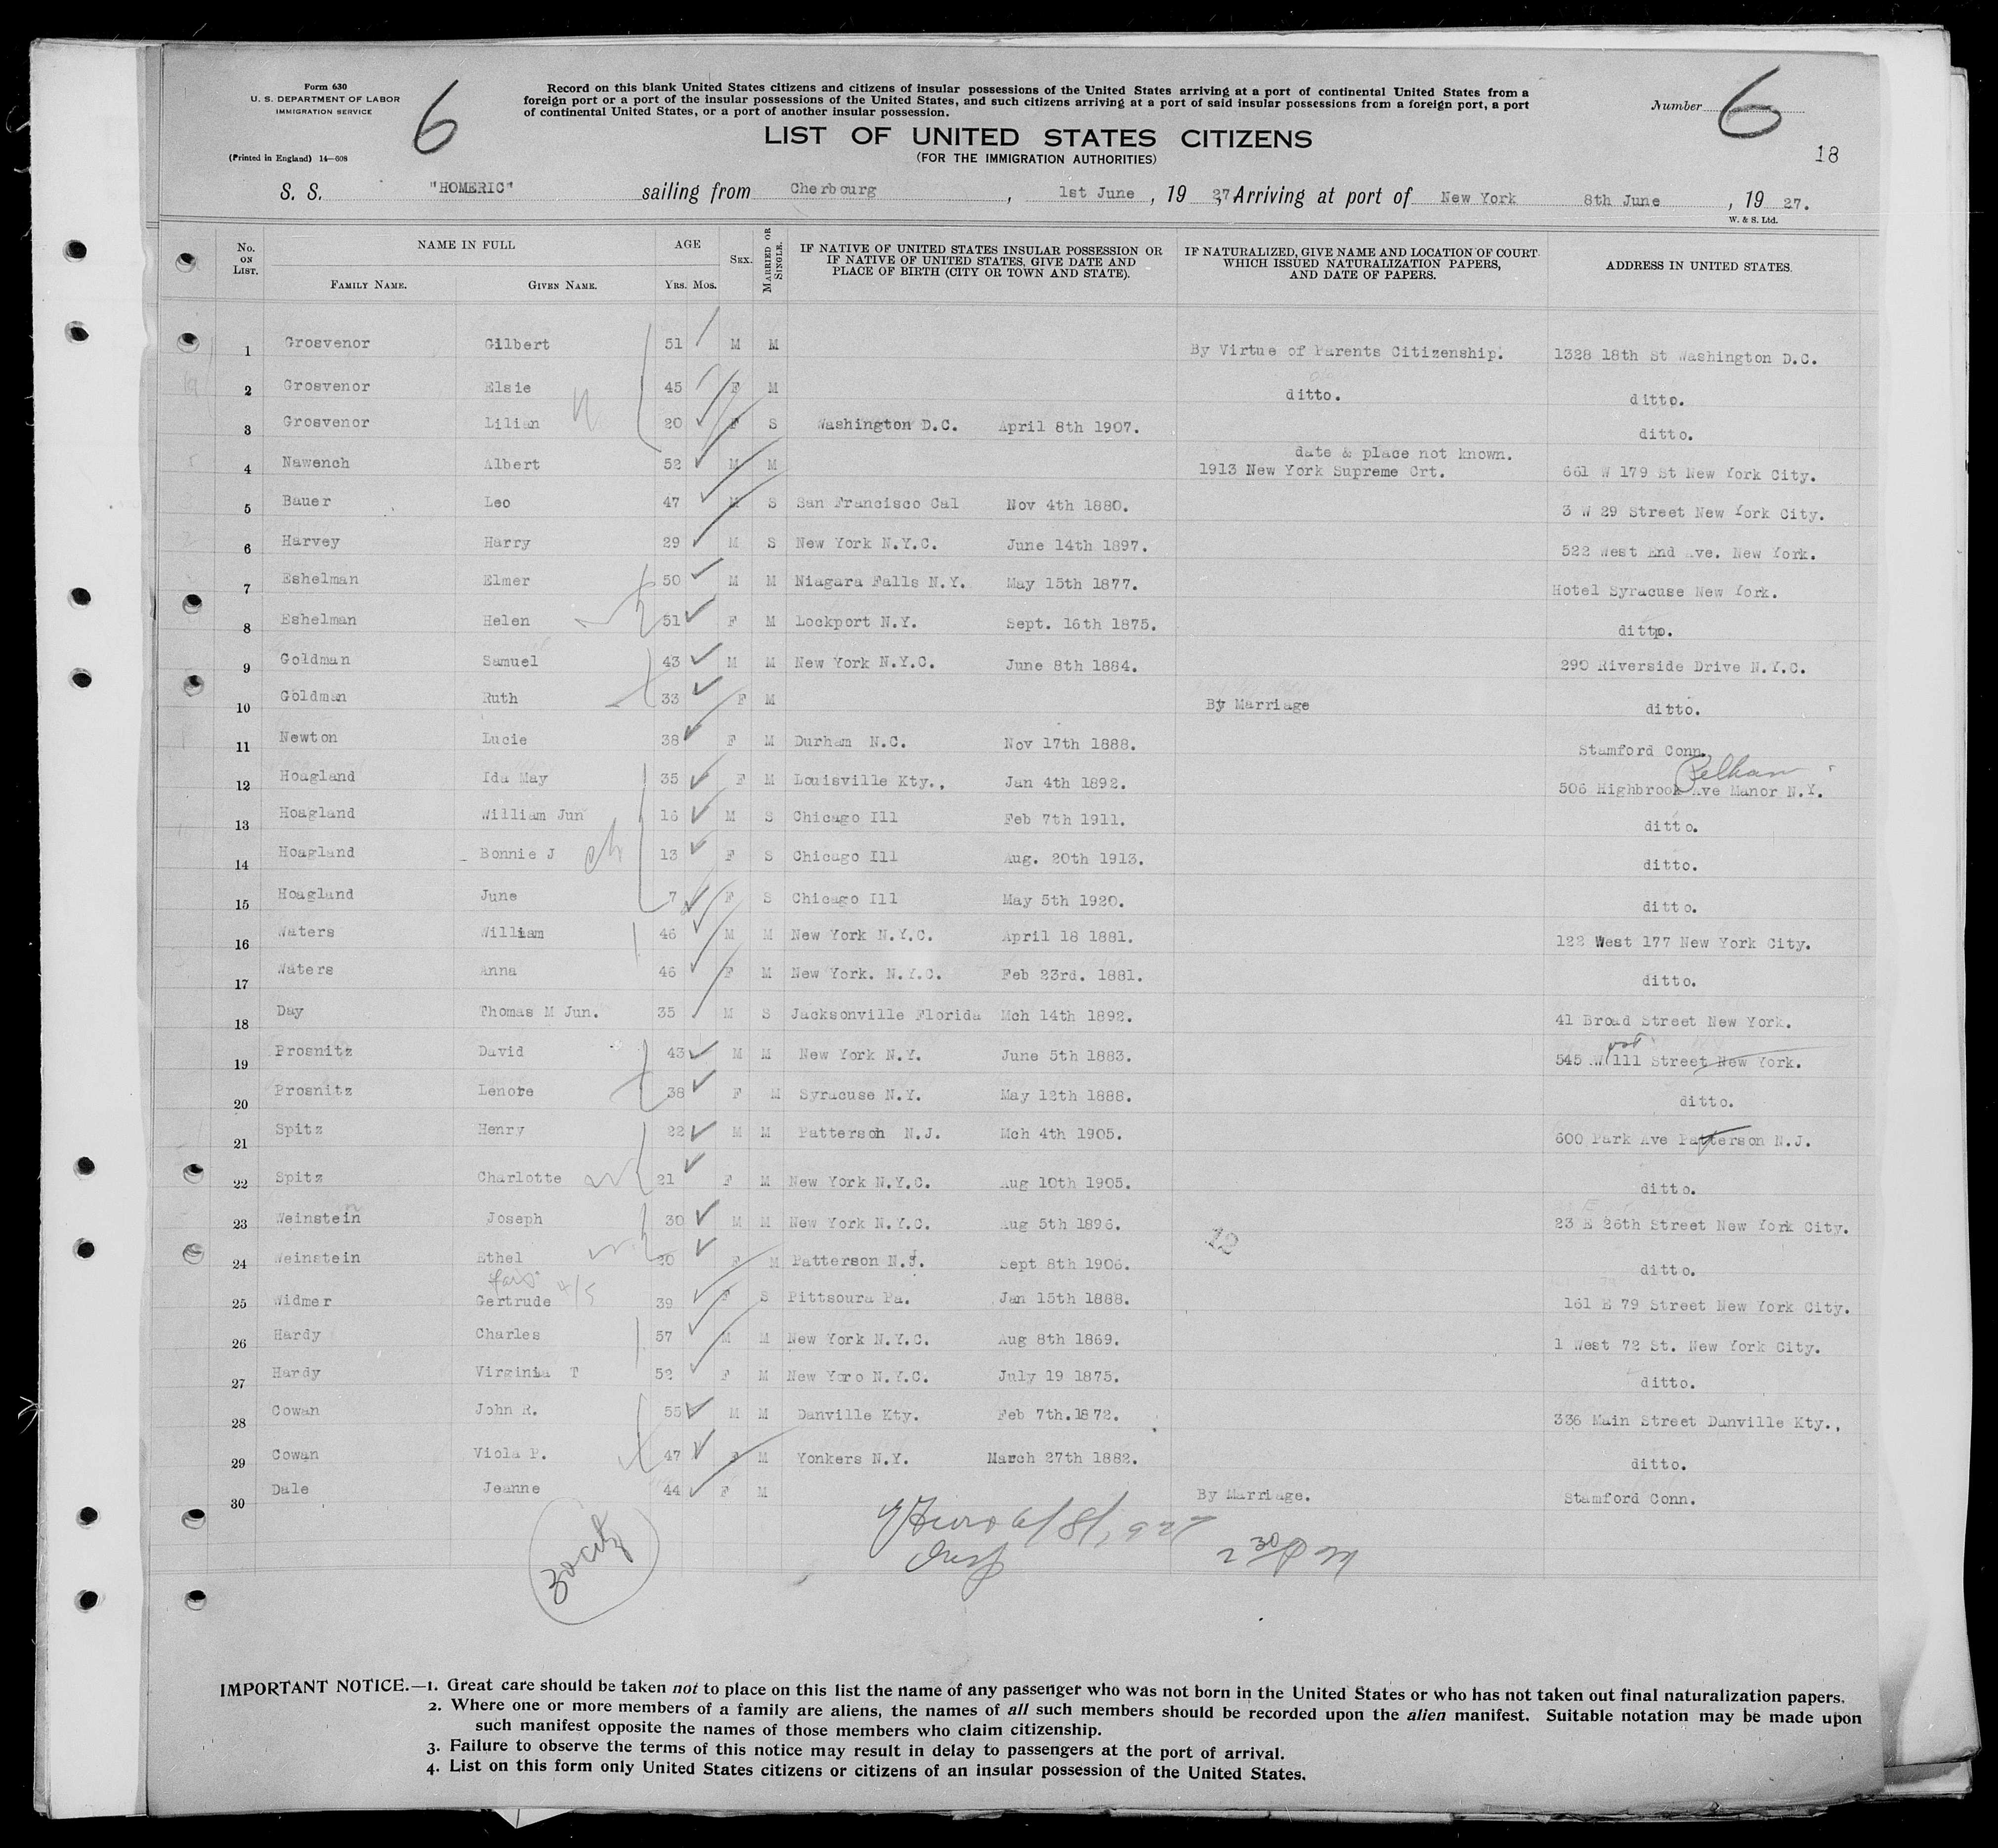 Form 630
U. S. DEPARTMENT OF LABOR
IMMIGRATION SERVICE
(Printed in England) 14—608
6
Record on this blank United States citizens and citizens of insular possessions of the United States arriving at a port of continental United States from a
foreign port or a port of the insular possessions of the United States, and such citizens arriving at a port of said insular possessions from a foreign port, a port
of continental United States, or a port of another insular possession.
Number 6
LIST OF UNITED STATES CITIZENS
(FOR THE IMMIGRATION AUTHORITIES)
18
S. S. "HOMERIC" sailing from Cherbourg, 1st June, 19 27, Arriving at port of New York 8th June, 19 27.
W. & S. Ltd.
No. ON LIST. NAME IN FULL AGE SEX. MARRIED OR SINGLE. IF NATIVE OF UNITED STATES INSULAR POSSESSION OR IF NATIVE OF UNITED STATES, GIVE DATE AND PLACE OF BIRTH (CITY OR TOWN AND STATE). IF NATURALIZED, GIVE NAME AND LOCATION OF COURT WHICH ISSUED NATURALIZATION PAPERS, AND DATE OF PAPERS. ADDRESS IN UNITED STATES.
FAMILY NAME. GIVEN NAME. YRS. MOS.
1 Grosvenor Gilbert 51 M M By Virtue of Parents Citizenship. 1328 18th St Washington D.C.
2 Grosvenor Elsie 45 F M ditto. ditto.
3 Grosvenor Lilian 20 F S Washington D.C. April 8th 1907. ditto.
date & place not known.
4 Nawench Albert 52 M M 1913 New York Supreme Crt. 661 W 179 St New York City.
5 Bauer Leo 47 M S San Francisco Cal Nov 4th 1880. 3 W 29 Street New York City.
6 Harvey Harry 29 M S New York N.Y.C. June 14th 1897. 522 West End Ave. New York.
7 Eshelman Elmer 50 M M Niagara Falls N.Y. May 15th 1877. Hotel Syracuse New York.
8 Eshelman Helen 51 F M Lockport N.Y. Sept. 16th 1875. ditto.
9 Goldman Samuel 43 M M New York N.Y.C. June 8th 1884. 290 Riverside Drive N.Y.C.
10 Goldman Ruth 33 F M By Marriage ditto.
11 Newton Lucie 38 F M Durham N.C. Nov 17th 1888. Stamford Conn.
Pelham
12 Hoagland Ida May 35 F M Louisville Kty., Jan 4th 1892. 506 Highbrook Ave Manor N.Y.
13 Hoagland William Jun 16 M S Chicago Ill Feb 7th 1911. ditto.
14 Hoagland Bonnie J 13 F S Chicago Ill Aug. 20th 1913. ditto.
15 Hoagland June 7 F S Chicago Ill May 5th 1920. ditto.
16 Waters William 46 M M New York N.Y.C. April 18 1881. 122 West 177 New York City.
17 Waters Anna 46 F M New York. N.Y.C. Feb 23rd. 1881. ditto.
18 Day Thomas M Jun. 35 M S Jacksonville Florida Mch 14th 1892. 41 Broad Street New York.
19 Prosnitz David 43 M M New York N.Y. June 5th 1883. 545 W 111 Street New York.
20 Prosnitz Lenore 38 F M Syracuse N.Y. May 12th 1888. ditto.
21 Spitz Henry 22 M M Patterson N.J. Mch 4th 1905. 600 Park Ave Patterson N.J.
22 Spitz Charlotte 21 F M New York N.Y.C. Aug 10th 1905. ditto.
23 Weinstein Joseph 30 M M New York N.Y.C. Aug 5th 1896. 23 E 26th Street New York City.
12
24 Weinstein Ethel 20 F M Patterson N.J. Sept 8th 1906. ditto.
25 Widmer Gertrude 39 F S Pittsoura Pa. Jan 15th 1888. 161 E 79 Street New York City.
26 Hardy Charles 57 M M New York N.Y.C. Aug 8th 1869. 1 West 72 St. New York City.
27 Hardy Virginia T 52 F M New Yoro N.Y.C. July 19 1875. ditto.
28 Cowan John R. 55 M M Danville Kty. Feb 7th.1872. 336 Main Street Danville Kty.,
29 Cowan Viola P. 47 F M Yonkers N.Y. March 27th 1882. ditto.
30 Dale Jeanne 44 F M By Marriage. Stamford Conn.
IMPORTANT NOTICE.—1. Great care should be taken not to place on this list the name of any passenger who was not born in the United States or who has not taken out final naturalization papers.
2. Where one or more members of a family are aliens, the names of all such members should be recorded upon the alien manifest. Suitable notation may be made upon
such manifest opposite the names of those members who claim citizenship.
3. Failure to observe the terms of this notice may result in delay to passengers at the port of arrival.
4. List on this form only United States citizens or citizens of an insular possession of the United States.